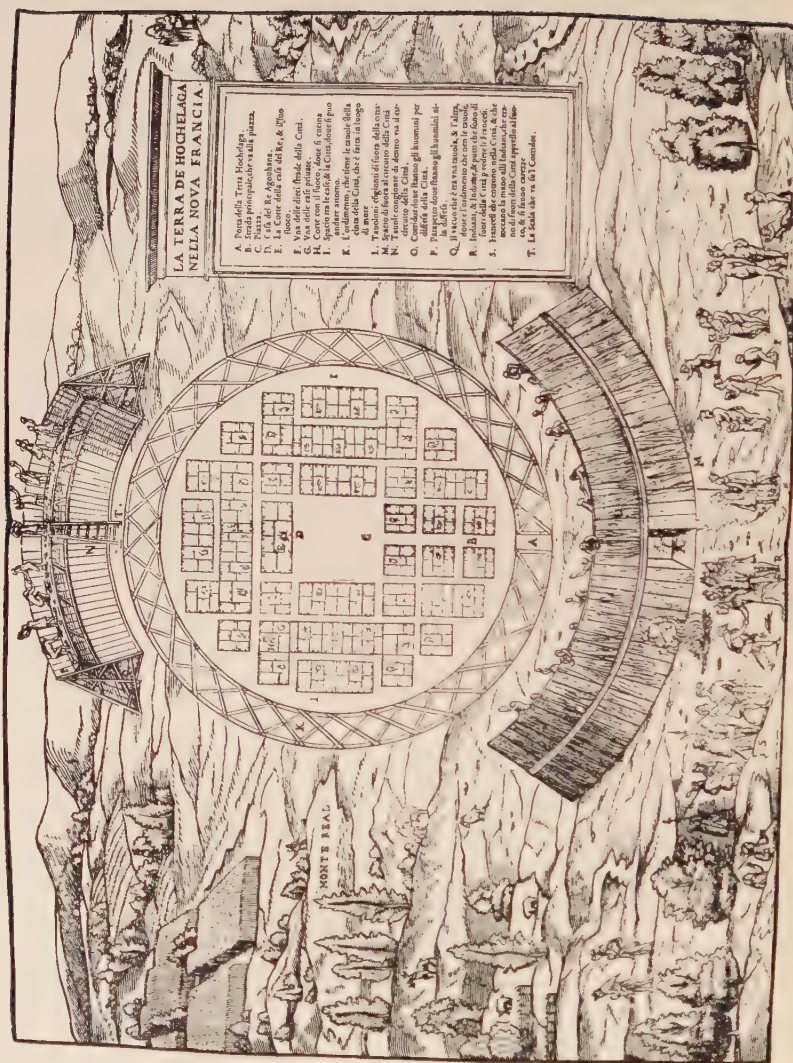 LA TERRA DE HOCHELAGA
NELLA NOVA FRANCIA.
A. Porta della Terra Hochelaga.
B. Strada principale, che va alla piazza.
C. Piazza.
D. Casa del Re Agouhana.
E. La Corte della casa del Re, & il suo
fuoco.
F. Vna delle dieci strade della Città.
G. Vna delle case priuate.
H. Corte con il fuoco, doue si cocina
I. Spacio tra le case, & la Città, doue si puo
andare attorno.
K. L'ordimento, che tiene le tauole della
cinta della Città, che è fatta in luogo
di mure
L. Tauoloni congionti di fuora della citta
M. Spacio di fuora al circuito della Città
N. Tauole congionte di dentro via il cir-
circuito della Città.
O. Corridor doue stanno gli huomini per
diffesa della Città.
P. Parapetto doue stanno gli huomini al-
la diffesa.
Q. Il vacuo che è tra vna tauola, & l'altra,
doue è l'ordimento che tien le tauole.
R. Indiani, & Indiane, & putti che sono di
fuori della Città p vedere li Francesi.
S. Francesi che entrono nella Città, & che
toccano la mano alli Indiani, che era-
no di fuori della Città appresso al fuo-
co, & si fanno carezze
T. La Scala che va su'l Corridor.
MONTE REAL
N
T
K
I
I
E
D
C
B
A
M
R
S